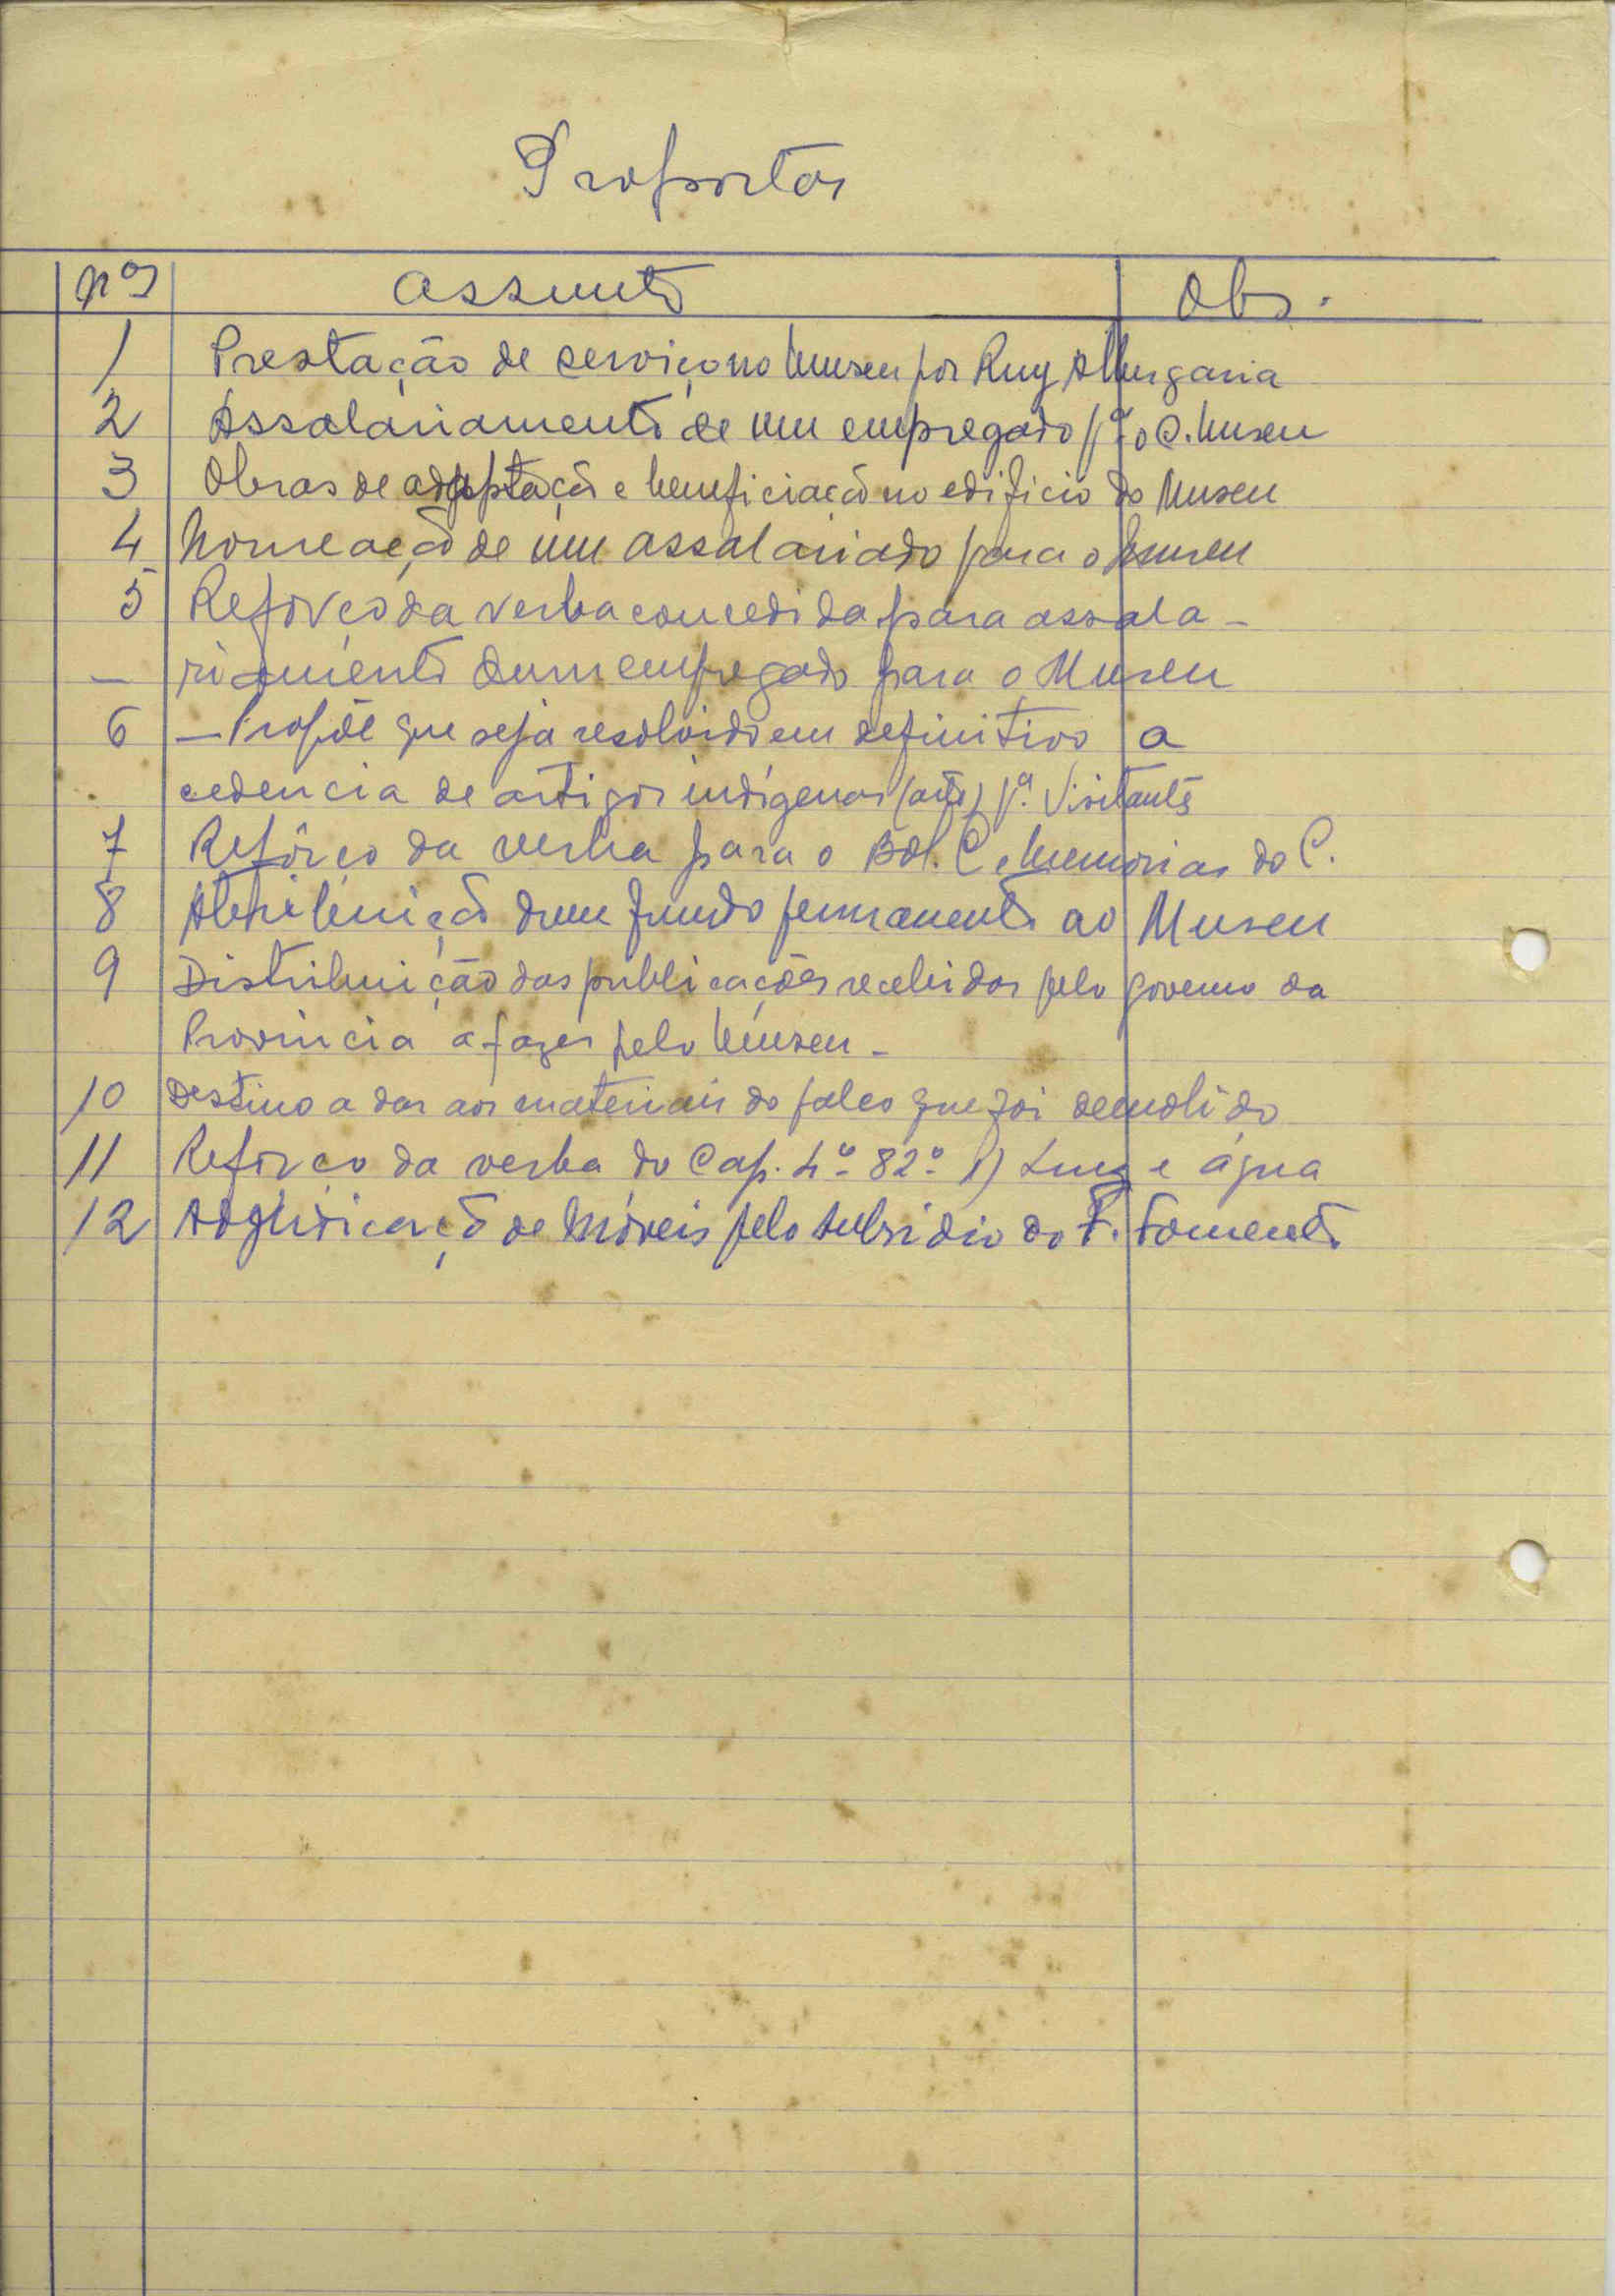 Propostas
nos assunto Obs.
1 Prestação de serviço no Museu por Ruy Albergaria
2 Assalariamento de um empregado pª o C. Museu
3 Obras de adaptação e beneficiação no edifício do Museu
4 Nomeação de um assalariado para o Museu
5 Reforço da verba concedida para assala-
– riamento dum empregado para o Museu
6 – Propõe que seja resolvido em definitivo a
cedencia de artigos indígenas (arte) pª. Visitantes
7 Refôrço da verba para o Bol. C. e Memorias do C.
8 Atribuição dum fundo permanente ao Museu
9 Distribuição das publicações recebidas pelo governo da
Provincia a fazer pelo Museu -
10 Destino a dar aos materiais do palco que foi demolido
11 Reforço da verba do Cap. 4º 82º 1) Luz e água
12 Adjudicação de Móveis pelo subsidio do F. Fomento